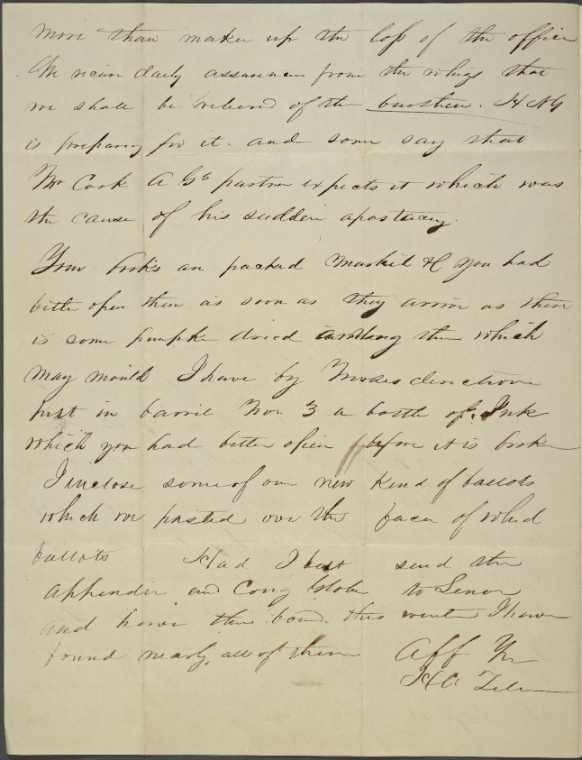 more than makes up the loss of the office
We receive daily assurances from the whigs that
we shall be relieved of the burthen. H A G
is preparing for it. and some say that
Mr Cook A Gs partner expects it which was
the cause of his sudden apostacy.
Your books are packed marked &c you had
better open them as soon as they arrive as there
is some pumpkin dried among them which
may mould I have by Moses directions
put in barrel No 3 a bottle of Ink
which you had better open before it is broken
I enclose some of our new kind of ballots
which we pasted over the faces of whig
ballots Had I best send the
Appendix and Cong Globe to
and have them bound. this winter I have
found nearly all of them Aff Yr
H A